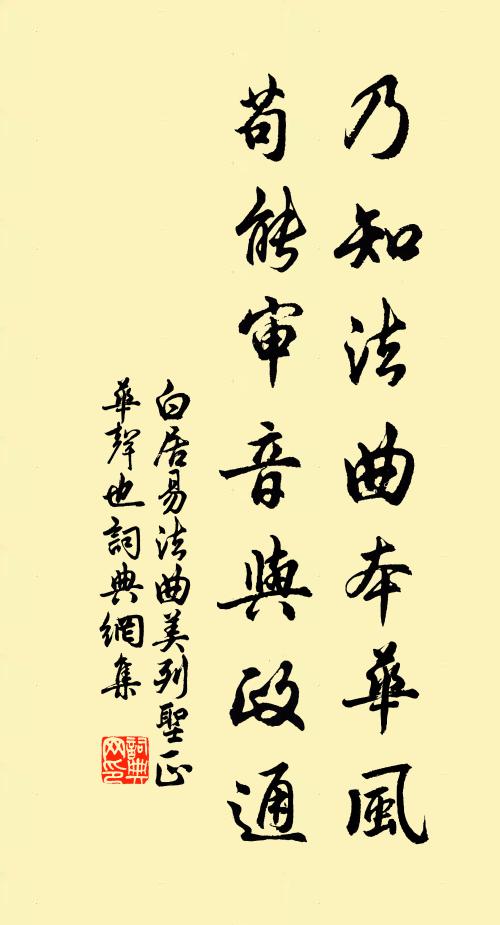 乃知法曲本華風
苟能审音與政通
白居易法曲美列聖正
華聲也詞典網集
詞典
网印